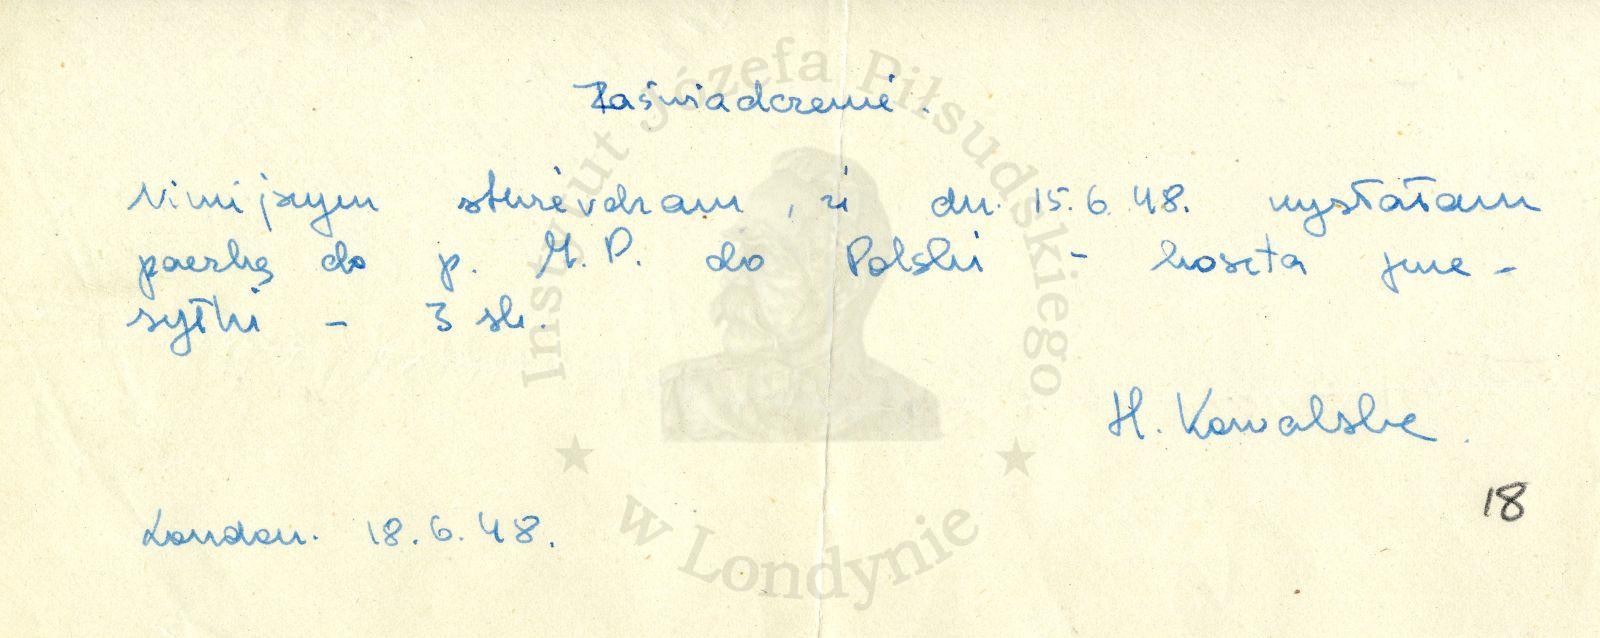 Zaświadczenie.
Niniejszym stwierdzam, że dn. 15.6.48. wysłałam
paczkę do p. M.P. do Polski - koszta prze-
syłki - 3 sh.
H. Kowalska.
18
London. 18.6.48.
Instytut Józefa Piłsudskiego
w Londynie